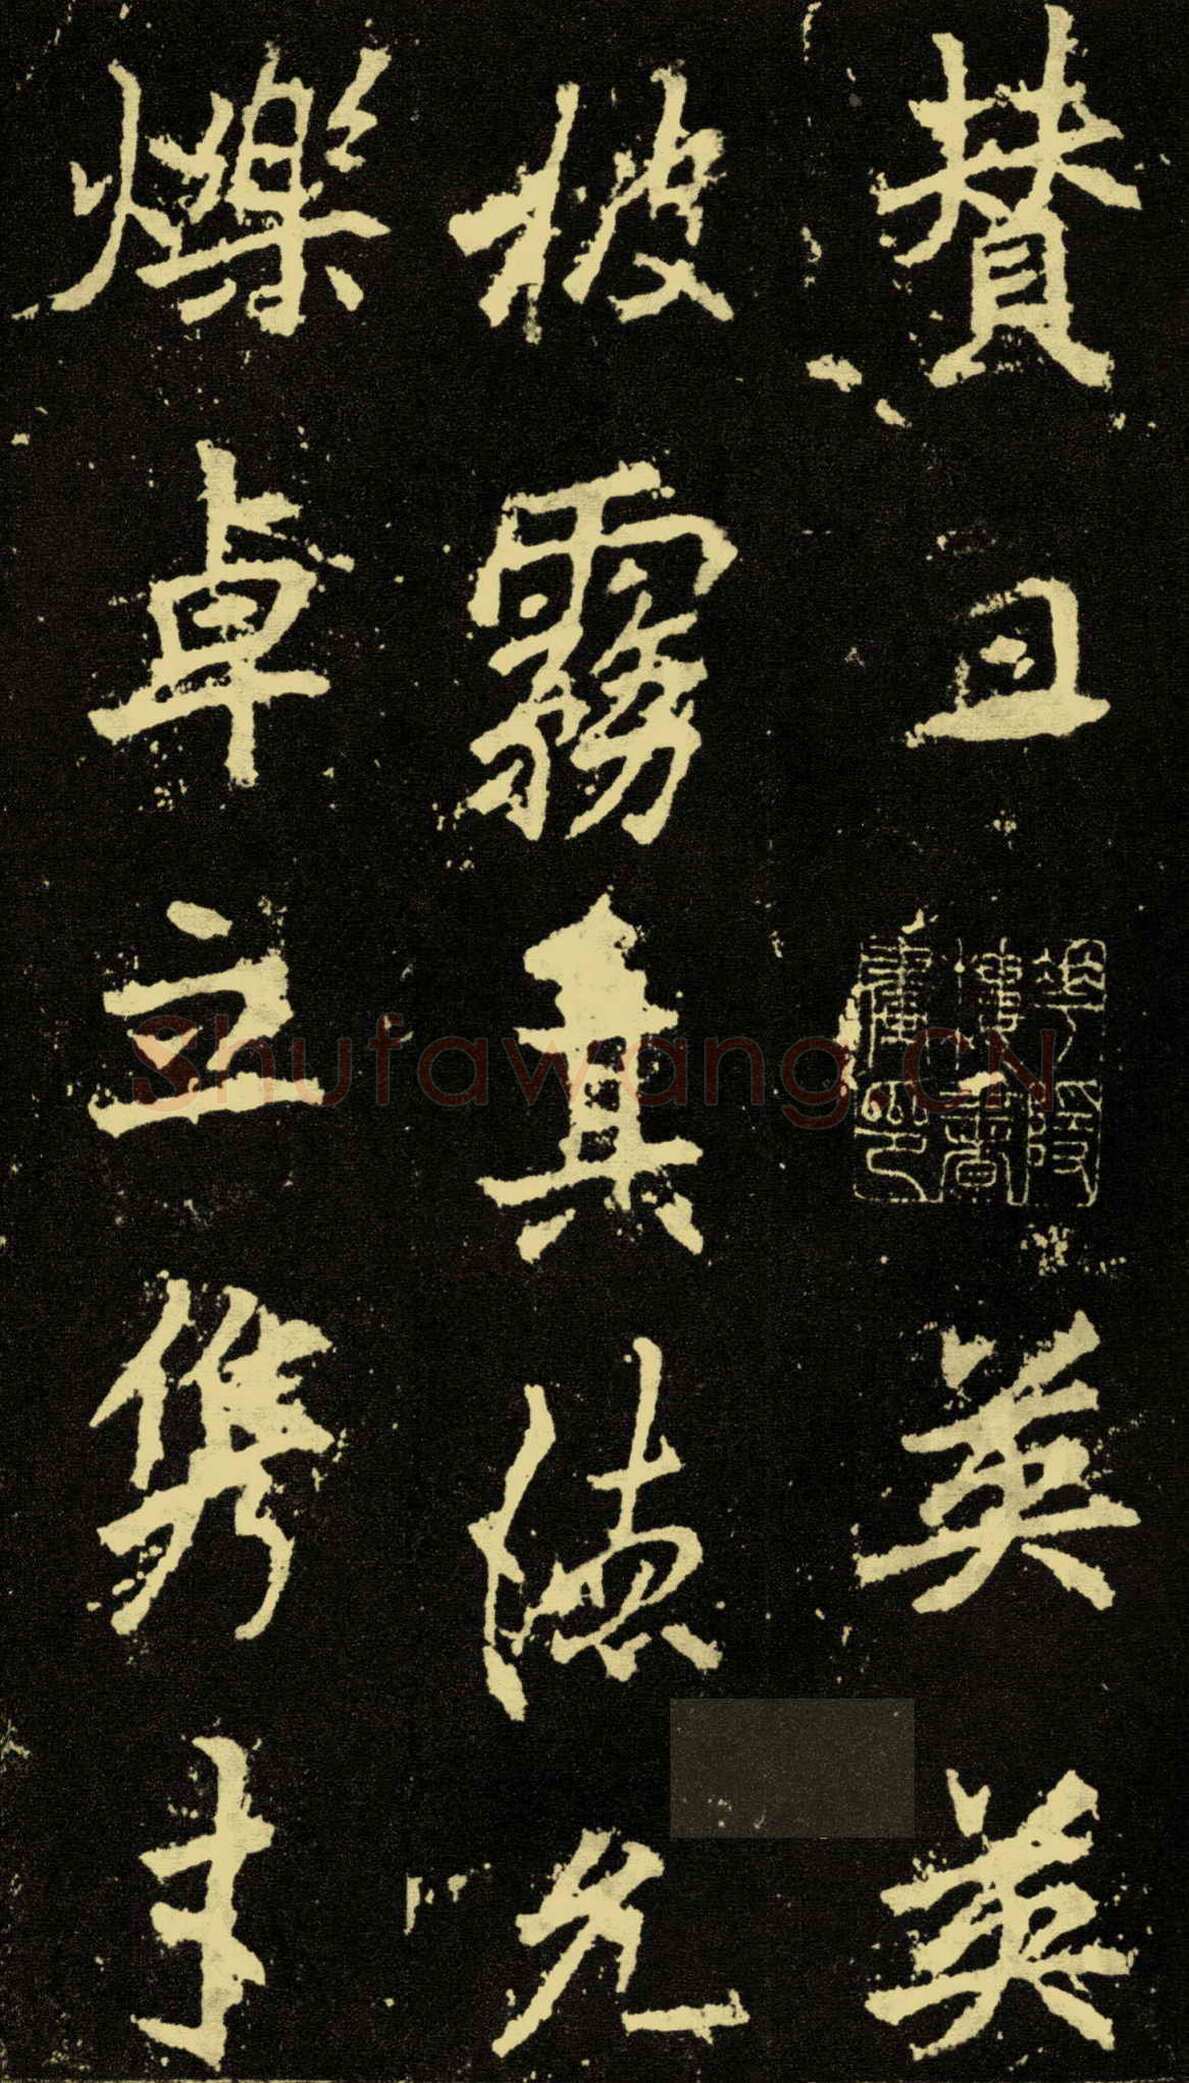 賛曰英英
披霧其德允
爍卓立雋才
Shufawang.CN